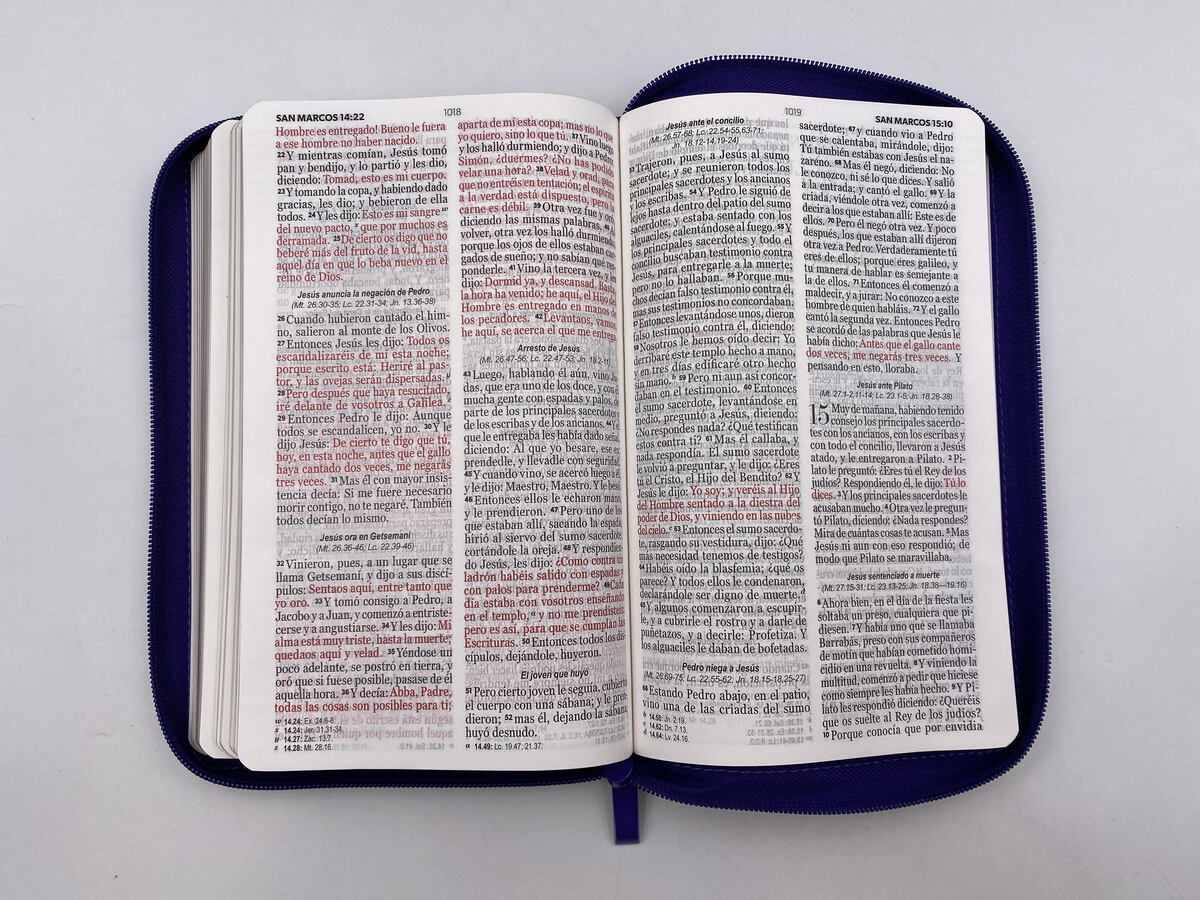 SAN MARCOS 14:22
1018
Hombre es entregado! Bueno le fuera
a ese hombre no haber nacido.
22 Y mientras comían, Jesús tomó
pan y bendijo, y lo partió y les dio,
diciendo: Tomad, esto es mi cuerpo.
23 Y tomando la copa, y habiendo dado
gracias, les dio; y bebieron de ella
todos. 24 Y les dijo: Esto es mi sangre
del nuevo pacto, que por muchos es
derramada. 25 De cierto os digo que no
beberé más del fruto de la vid, hasta
aquel día en que lo beba nuevo en el
reino de Dios.
Jesús anuncia la negación de Pedro
(Mt. 26.30-35; Lc. 22.31-34; Jn. 13.36-38)
26 Cuando hubieron cantado el him-
no, salieron al monte de los Olivos.
27 Entonces Jesús les dijo: Todos os
escandalizaréis de mí esta noche;
porque escrito está: Heriré al pas-
tor, y las ovejas serán dispersadas.
28 Pero después que haya resucitado,
iré delante de vosotros a Galilea.
29 Entonces Pedro le dijo: Aunque
todos se escandalicen, yo no. 30 Y le
dijo Jesús: De cierto te digo que tú,
hoy, en esta noche, antes que el gallo
haya cantado dos veces, me negarás
tres veces. 31 Mas él con mayor insis-
tencia decía: Si me fuere necesario
morir contigo, no te negaré. También
todos decían lo mismo.
Jesús ora en Getsemaní
(Mt. 26.36-46; Lc. 22.39-46)
32 Vinieron, pues, a un lugar que se
llama Getsemaní, y dijo a sus discí-
pulos: Sentaos aquí, entre tanto que
yo oro. 33 Y tomó consigo a Pedro, a
Jacobo y a Juan, y comenzó a entriste-
cerse y a angustiarse. 34 Y les dijo: Mi
alma está muy triste, hasta la muerte;
quedaos aquí y velad. 35 Yéndose un
poco adelante, se postró en tierra, y
oró que si fuese posible, pasase de él
aquella hora. 36 Y decía: Abba, Padre,
todas las cosas son posibles para ti;
14.24: Ex. 24.6-8.
14.24: Jer. 31.31-34.
14.27: Zac. 13.7.
14.28: Mt. 28.16.
aparta de mí esta copa; mas no lo que
yo quiero, sino lo que tú. 37 Vino luego
y los halló durmiendo; y dijo a Pedro:
Simón, ¿duermes? ¿No has podido
velar una hora? 38 Velad y orad, para
que no entréis en tentación; el espíritu
a la verdad está dispuesto, pero la
carne es débil. 39 Otra vez fue y oró,
diciendo las mismas palabras. 40 Al
volver, otra vez los halló durmiendo,
porque los ojos de ellos estaban car-
gados de sueño; y no sabían qué res-
ponderle. 41 Vino la tercera vez, y les
dijo: Dormid ya, y descansad. Basta,
la hora ha venido; he aquí, el Hijo del
Hombre es entregado en manos de
los pecadores. 42 Levantaos, vamos;
he aquí, se acerca el que me entrega.
Arresto de Jesús
(Mt. 26.47-56; Lc. 22.47-53; Jn. 18.2-11)
43 Luego, hablando él aún, vino Ju-
das, que era uno de los doce, y con él
mucha gente con espadas y palos, de
parte de los principales sacerdotes
y de los escribas y de los ancianos. 44 Y el
que le entregaba les había dado señal,
diciendo: Al que yo besare, ése es;
prendedle, y llevadle con seguridad.
45 Y cuando vino, se acercó luego a él,
y le dijo: Maestro, Maestro. Y le besó.
46 Entonces ellos le echaron mano,
y le prendieron. 47 Pero uno de los
que estaban allí, sacando la espada,
hirió al siervo del sumo sacerdote,
cortándole la oreja. 48 Y respondien-
do Jesús, les dijo: ¿Como contra un
ladrón habéis salido con espadas y
con palos para prenderme? 49 Cada
día estaba con vosotros enseñando
en el templo, y no me prendisteis;
pero es así, para que se cumplan las
Escrituras. 50 Entonces todos los dis-
cípulos, dejándole, huyeron.
El joven que huyó
51 Pero cierto joven le seguía, cubierto
el cuerpo con una sábana; y le pren-
dieron; 52 mas él, dejando la sábana,
huyó desnudo.
a 14.49: Lc. 19.47; 21.37.
1019
SAN MARCOS 15:10
Jesús ante el concilio
(Mt. 26.57-68; Lc. 22.54-55,63-71;
Jn. 18.12-14,19-24)
53 Trajeron, pues, a Jesús al sumo
sacerdote; y se reunieron todos los
principales sacerdotes y los ancianos
y los escribas. 54 Y Pedro le siguió de
lejos hasta dentro del patio del sumo
sacerdote; y estaba sentado con los
alguaciles, calentándose al fuego. 55 Y
los principales sacerdotes y todo el
concilio buscaban testimonio contra
Jesús, para entregarle a la muerte;
pero no lo hallaban. 56 Porque mu-
chos decían falso testimonio contra él,
mas sus testimonios no concordaban.
57 Entonces levantándose unos, dieron
falso testimonio contra él, diciendo:
58 Nosotros le hemos oído decir: Yo
derribaré este templo hecho a mano,
y en tres días edificaré otro hecho
sin mano. 59 Pero ni aun así concor-
daban en el testimonio. 60 Entonces
el sumo sacerdote, levantándose en
medio, preguntó a Jesús, diciendo:
¿No respondes nada? ¿Qué testifican
éstos contra ti? 61 Mas él callaba, y
nada respondía. El sumo sacerdote
le volvió a preguntar, y le dijo: ¿Eres
tú el Cristo, el Hijo del Bendito? 62 Y
Jesús le dijo: Yo soy; y veréis al Hijo
del Hombre sentado a la diestra del
poder de Dios, y viniendo en las nubes
del cielo. 63 Entonces el sumo sacerdo-
te, rasgando su vestidura, dijo: ¿Qué
más necesidad tenemos de testigos?
64 Habéis oído la blasfemia; ¿qué os
parece? Y todos ellos le condenaron,
declarándole ser digno de muerte.
65 Y algunos comenzaron a escupir-
le, y a cubrirle el rostro y a darle de
puñetazos, y a decirle: Profetiza. Y
los alguaciles le daban de bofetadas.
Pedro niega a Jesús
(Mt. 26.69-75; Lc. 22.55-62; Jn. 18.15-18,25-27)
66 Estando Pedro abajo, en el patio,
vino una de las criadas del sumo
b 14.58: Jn. 2.19.
c 14.62: Dn. 7.13.
d 14.64: Lv. 24.16.
sacerdote; 67 y cuando vio a Pedro
que se calentaba, mirándole, dijo:
Tú también estabas con Jesús el na-
zareno. 68 Mas él negó, diciendo: No
le conozco, ni sé lo que dices. Y salió
a la entrada; y cantó el gallo. 69 Y la
criada, viéndole otra vez, comenzó a
decir a los que estaban allí: Este es de
ellos. 70 Pero él negó otra vez. Y poco
después, los que estaban allí dijeron
otra vez a Pedro: Verdaderamente tú
eres de ellos; porque eres galileo, y
tu manera de hablar es semejante a
la de ellos. 71 Entonces él comenzó a
maldecir, y a jurar: No conozco a este
hombre de quien habláis. 72 Y el gallo
cantó la segunda vez. Entonces Pedro
se acordó de las palabras que Jesús le
había dicho: Antes que el gallo cante
dos veces, me negarás tres veces. Y
pensando en esto, lloraba.
Jesús ante Pilato
(Mt. 27.1-2,11-14; Lc. 23.1-5; Jn. 18.28-38)
15 Muy de mañana, habiendo tenido
consejo los principales sacerdo-
tes con los ancianos, con los escribas y
con todo el concilio, llevaron a Jesús
atado, y le entregaron a Pilato. 2 Pi-
lato le preguntó: ¿Eres tú el Rey de los
judíos? Respondiendo él, le dijo: Tú lo
dices. 3 Y los principales sacerdotes le
acusaban mucho. 4 Otra vez le pregun-
tó Pilato, diciendo: ¿Nada respondes?
Mira de cuántas cosas te acusan. 5 Mas
Jesús ni aun con eso respondió; de
modo que Pilato se maravillaba.
Jesús sentenciado a muerte
(Mt. 27.15-31; Lc. 23.13-25; Jn. 18.38—19.16)
6 Ahora bien, en el día de la fiesta les
soltaba un preso, cualquiera que pi-
diesen. 7 Y había uno que se llamaba
Barrabás, preso con sus compañeros
de motín que habían cometido homi-
cidio en una revuelta. 8 Y viniendo la
multitud, comenzó a pedir que hiciese
como siempre les había hecho. 9 Y Pi-
lato les respondió diciendo: ¿Queréis
que os suelte al Rey de los judíos?
10 Porque conocía que por envidia